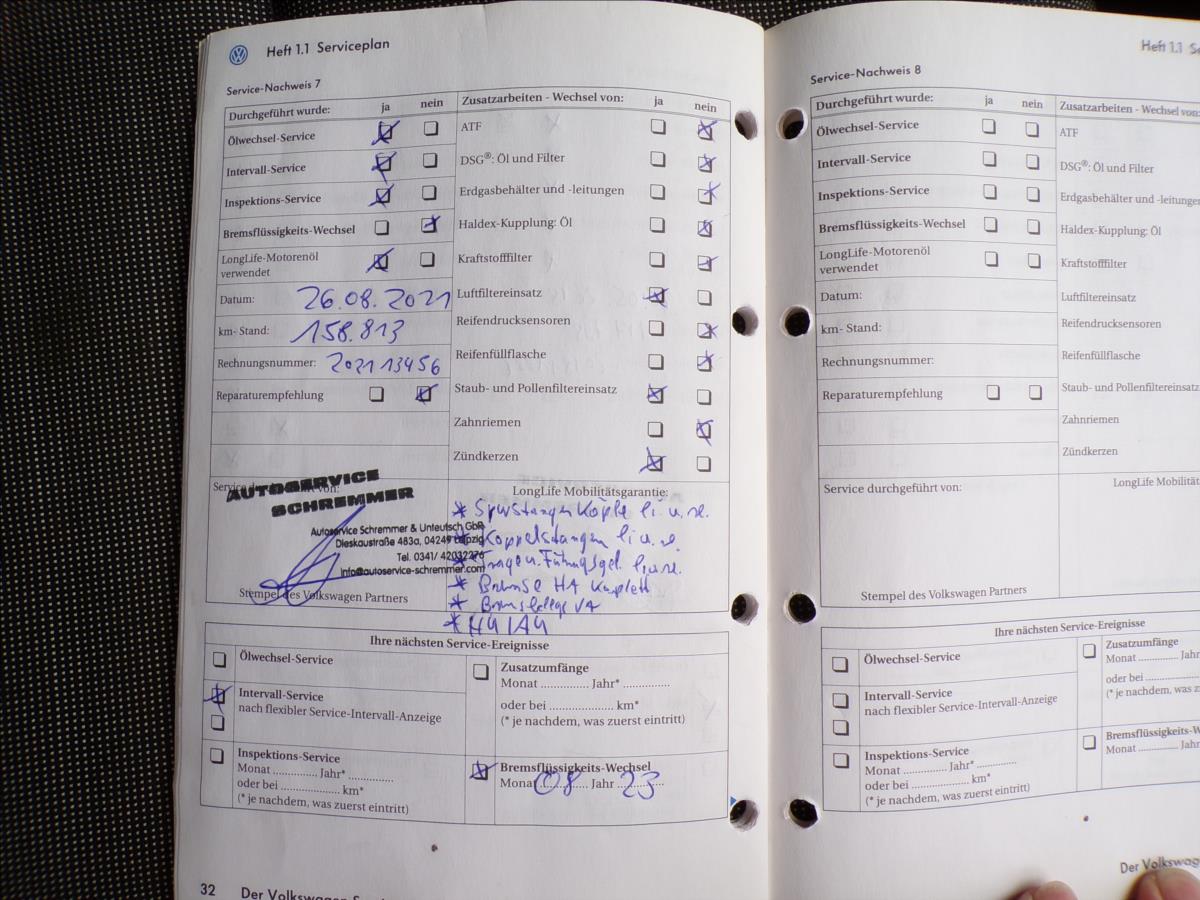 Heft 1.1 Serviceplan
Service-Nachweis 7
Durchgeführt wurde: ja nein
Ölwechsel-Service
Intervall-Service
Inspektions-Service
Bremsflüssigkeits-Wechsel
LongLife-Motorenöl
verwendet
Datum: 26.08.2021
km- Stand: 158.813
Rechnungsnummer: 202113456
Reparaturempfehlung
Zusatzarbeiten - Wechsel von: ja nein
ATF
DSG®: Öl und Filter
Erdgasbehälter und -leitungen
Haldex-Kupplung: Öl
Kraftstofffilter
Luftfiltereinsatz
Reifendrucksensoren
Reifenfüllflasche
Staub- und Pollenfiltereinsatz
Zahnriemen
Zündkerzen
Service durchgeführt von:
AUTOSERVICE
SCHREMMER
Autoservice Schremmer & Unteutsch GbR
Dieskaustraße 483a, 04249 Leipzig
Tel. 0341/ 42032276
info@autoservice-schremmer.com
Stempel des Volkswagen Partners
LongLife Mobilitätsgarantie:
* Spurstangen Köpfe li. u. re.
* Koppelstangen li u. re.
* Trag u. Führungsgel. li u. re.
* Bremse HA Komplett
* Bremsbelege VA
* HU/AU
Ihre nächsten Service-Ereignisse
Ölwechsel-Service
Intervall-Service
nach flexibler Service-Intervall-Anzeige
Inspektions-Service
Monat ............. Jahr* .............
oder bei .................... km*
(* je nachdem, was zuerst eintritt)
Zusatzumfänge
Monat .............. Jahr* ..............
oder bei .................... km*
(* je nachdem, was zuerst eintritt)
Bremsflüssigkeits-Wechsel
Monat 08 Jahr 23
32 Der Volkswagen
Heft 1.1
Service-Nachweis 8
Durchgeführt wurde: ja nein
Ölwechsel-Service
Intervall-Service
Inspektions-Service
Bremsflüssigkeits-Wechsel
LongLife-Motorenöl
verwendet
Datum:
km- Stand:
Rechnungsnummer:
Reparaturempfehlung
Zusatzarbeiten - Wechsel von:
ATF
DSG®: Öl und Filter
Erdgasbehälter und -leitungen
Haldex-Kupplung: Öl
Kraftstofffilter
Luftfiltereinsatz
Reifendrucksensoren
Reifenfüllflasche
Staub- und Pollenfiltereinsatz
Zahnriemen
Zündkerzen
Service durchgeführt von:
LongLife Mobilität
Stempel des Volkswagen Partners
Ihre nächsten Service-Ereignisse
Ölwechsel-Service
Intervall-Service
nach flexibler Service-Intervall-Anzeige
Inspektions-Service
Monat ............. Jahr* .............
oder bei .................... km*
(* je nachdem, was zuerst eintritt)
Zusatzumfänge
Monat .............. Jahr
oder bei
(* je nachdem, was zuerst
Bremsflüssigkeits-W
Monat .............. Jahr
Der Volkswagen